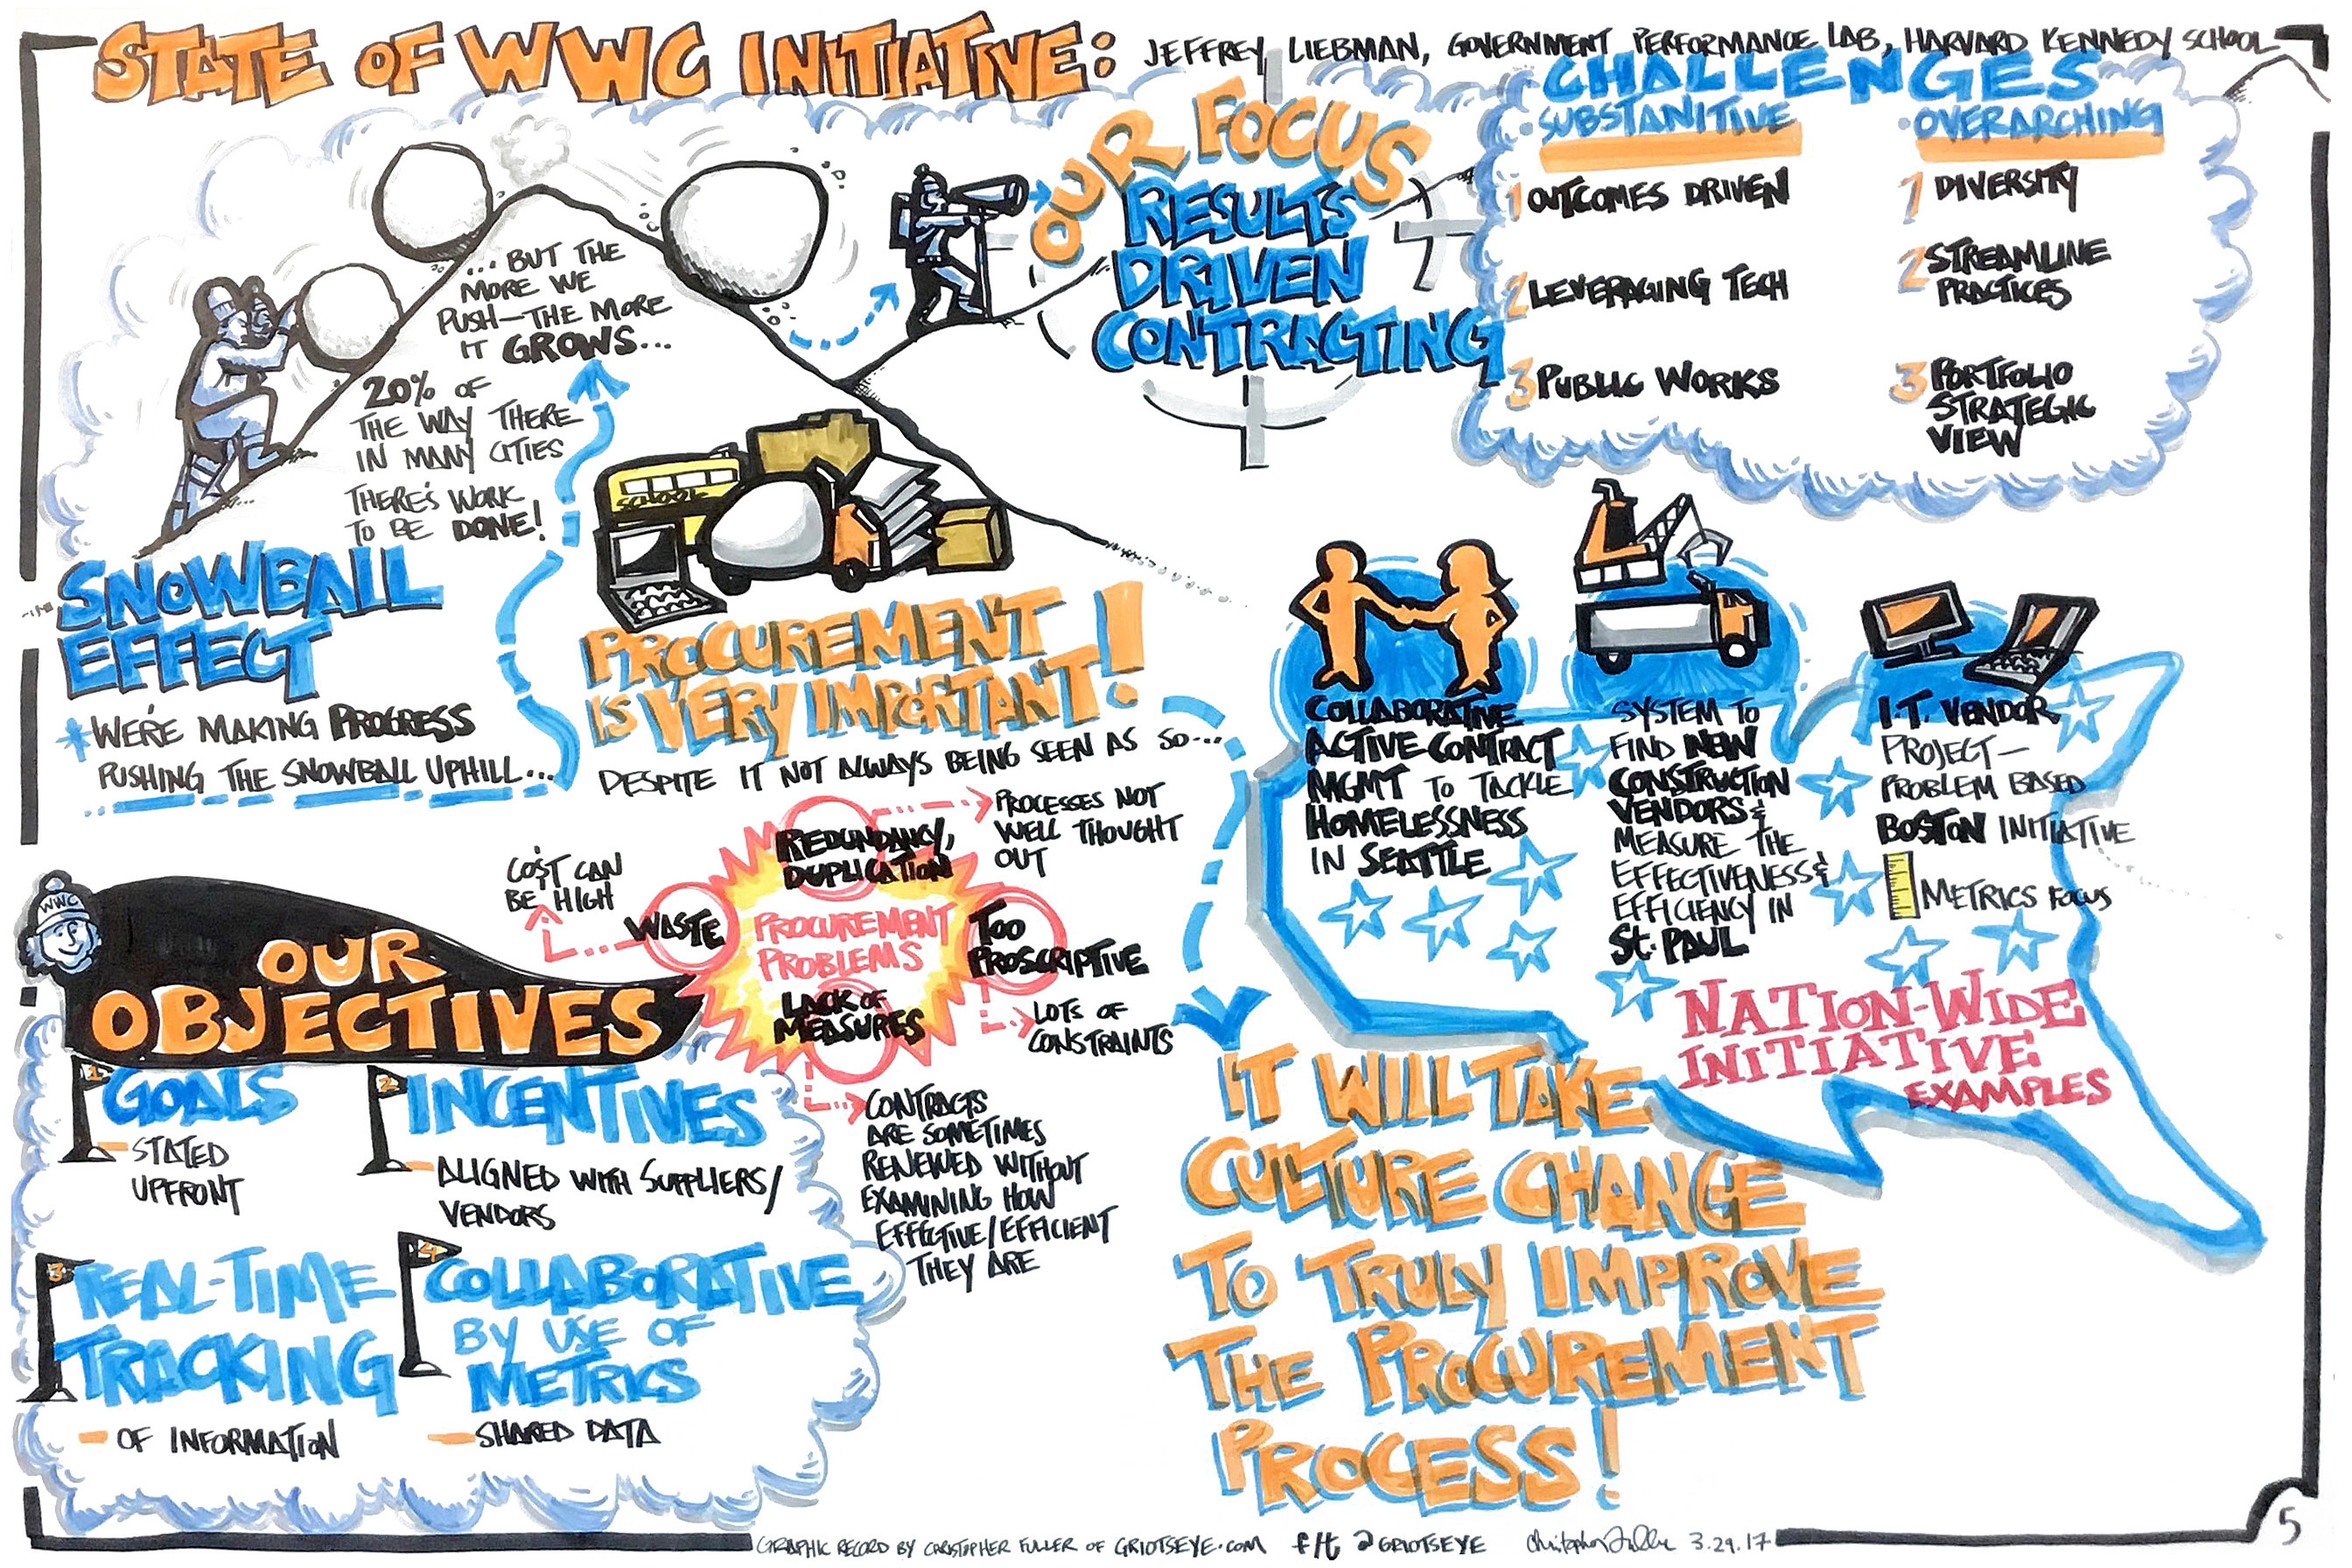 STATE OF WWC INITIATIVE: JEFFREY LIEBMAN, GOVERNMENT PERFORMANCE LAB, HARVARD KENNEDY SCHOOL
... BUT THE
MORE WE
PUSH—THE MORE
IT GROWS...
20% OF
THE WAY THERE
IN MANY CITIES
THERE'S WORK
TO BE DONE!
SNOWBALL
EFFECT
* WE'RE MAKING PROGRESS
PUSHING THE SNOWBALL UPHILL...
OUR FOCUS
RESULTS
DRIVEN
CONTRACTING
CHALLENGES
• SUBSTANITIVE
1 OUTCOMES DRIVEN
2 LEVERAGING TECH
3 PUBLIC WORKS
• OVERARCHING
1 DIVERSITY
2 STREAMLINE
PRACTICES
3 PORTFOLIO
STRATEGIC
VIEW
SCHOOL
PROCUREMENT
IS VERY IMPORTANT!
DESPITE IT NOT ALWAYS BEING SEEN AS SO...
PROCUREMENT
PROBLEMS
REDUNDANCY,
DUPLICATION
PROCESSES NOT
WELL THOUGHT
OUT
WASTE
CO$T CAN
BE HIGH
TOO
PROSCRIPTIVE
LOTS OF
CONSTRAINTS
LACK OF
MEASURES
CONTRACTS
ARE SOMETIMES
RENEWED WITHOUT
EXAMINING HOW
EFFECTIVE/EFFICIENT
THEY ARE
WWC
OUR
OBJECTIVES
1 GOALS
— STATED
UPFRONT
2 INCENTIVES
— ALIGNED WITH SUPPLIERS/
VENDORS
3 REAL-TIME
TRACKING
— OF INFORMATION
4 COLLABORATIVE
BY USE OF
METRICS
— SHARED DATA
COLLABORATIVE
ACTIVE CONTRACT
MGMT TO TACKLE
HOMELESSNESS
IN SEATTLE
SYSTEM TO
FIND NEW
CONSTRUCTION
VENDORS &
MEASURE THE
EFFECTIVENESS &
EFFICIENCY IN
St. PAUL
I.T. VENDOR
PROJECT—
PROBLEM BASED
BOSTON INITIATIVE
METRICS FOCUS
NATION-WIDE
INITIATIVE
EXAMPLES
IT WILL TAKE
CULTURE CHANGE
TO TRULY IMPROVE
THE PROCUREMENT
PROCESS!
GRAPHIC RECORD BY CHRISTOPHER FULLER OF GRIOTSEYE.COM f/t @GRIOTSEYE Christopher Fuller 3.29.17
5